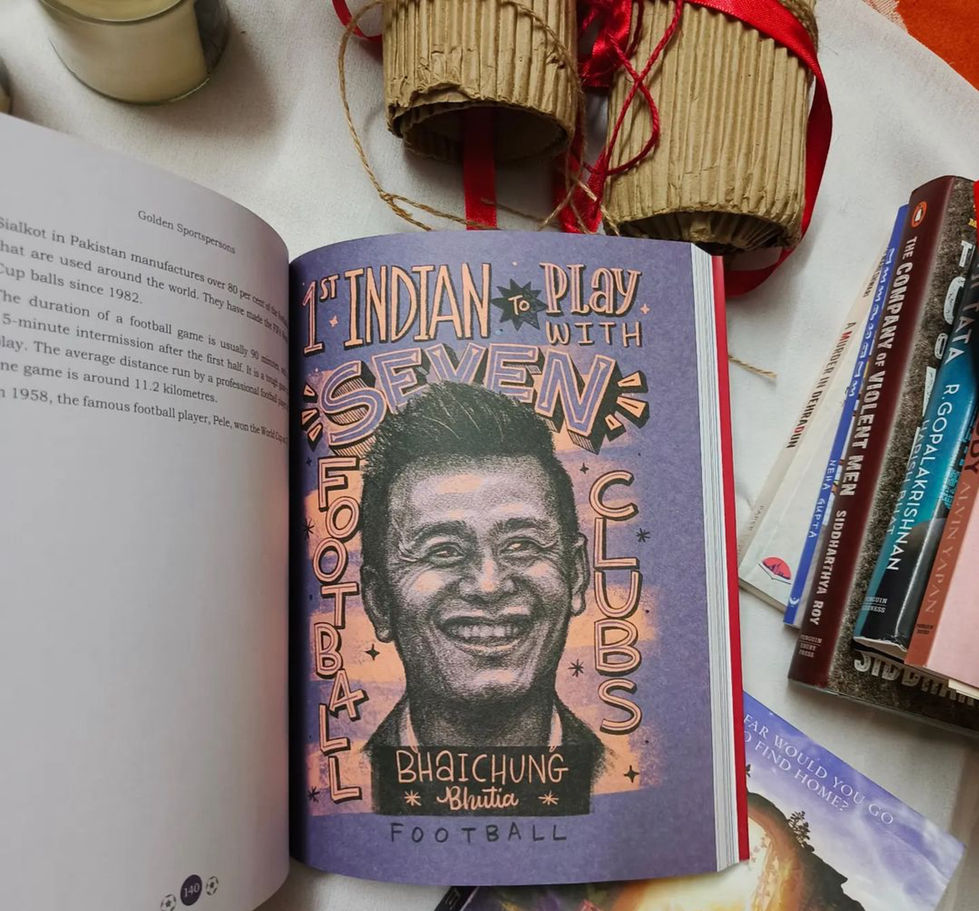 Golden Sportspersons
Sialkot in Pakistan manufactures over 80 per cent of the
that are used around the world. They have made the
Cup balls since 1982.
The duration of a football game is usually 90 minutes
15-minute intermission after the first half. It is a
play. The average distance run by a professional football
one game is around 11.2 kilometres.
In 1958, the famous football player, Pele, won the World Cup
140
1ST INDIAN TO PLAY
WITH
SEVEN
FOOTBALL
CLUBS
BHAICHUNG
Bhutia
FOOTBALL
A MURDER IN DEHRADUN
NEHA GUPTA
THE COMPANY OF VIOLENT MEN SIDDHARTHYA ROY
PENGUIN
TATA
R GOPALAKRISHNAN
HARISH BHAT
PENGUIN
BUSINESS
ALVIN YAPAN
FAR WOULD YOU GO
TO FIND HOME?